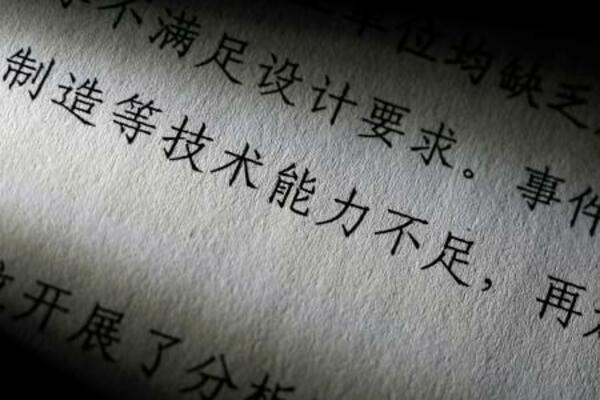 不满足设计要求。事件
单位均缺乏
制造等技术能力不足，再
开展了分析